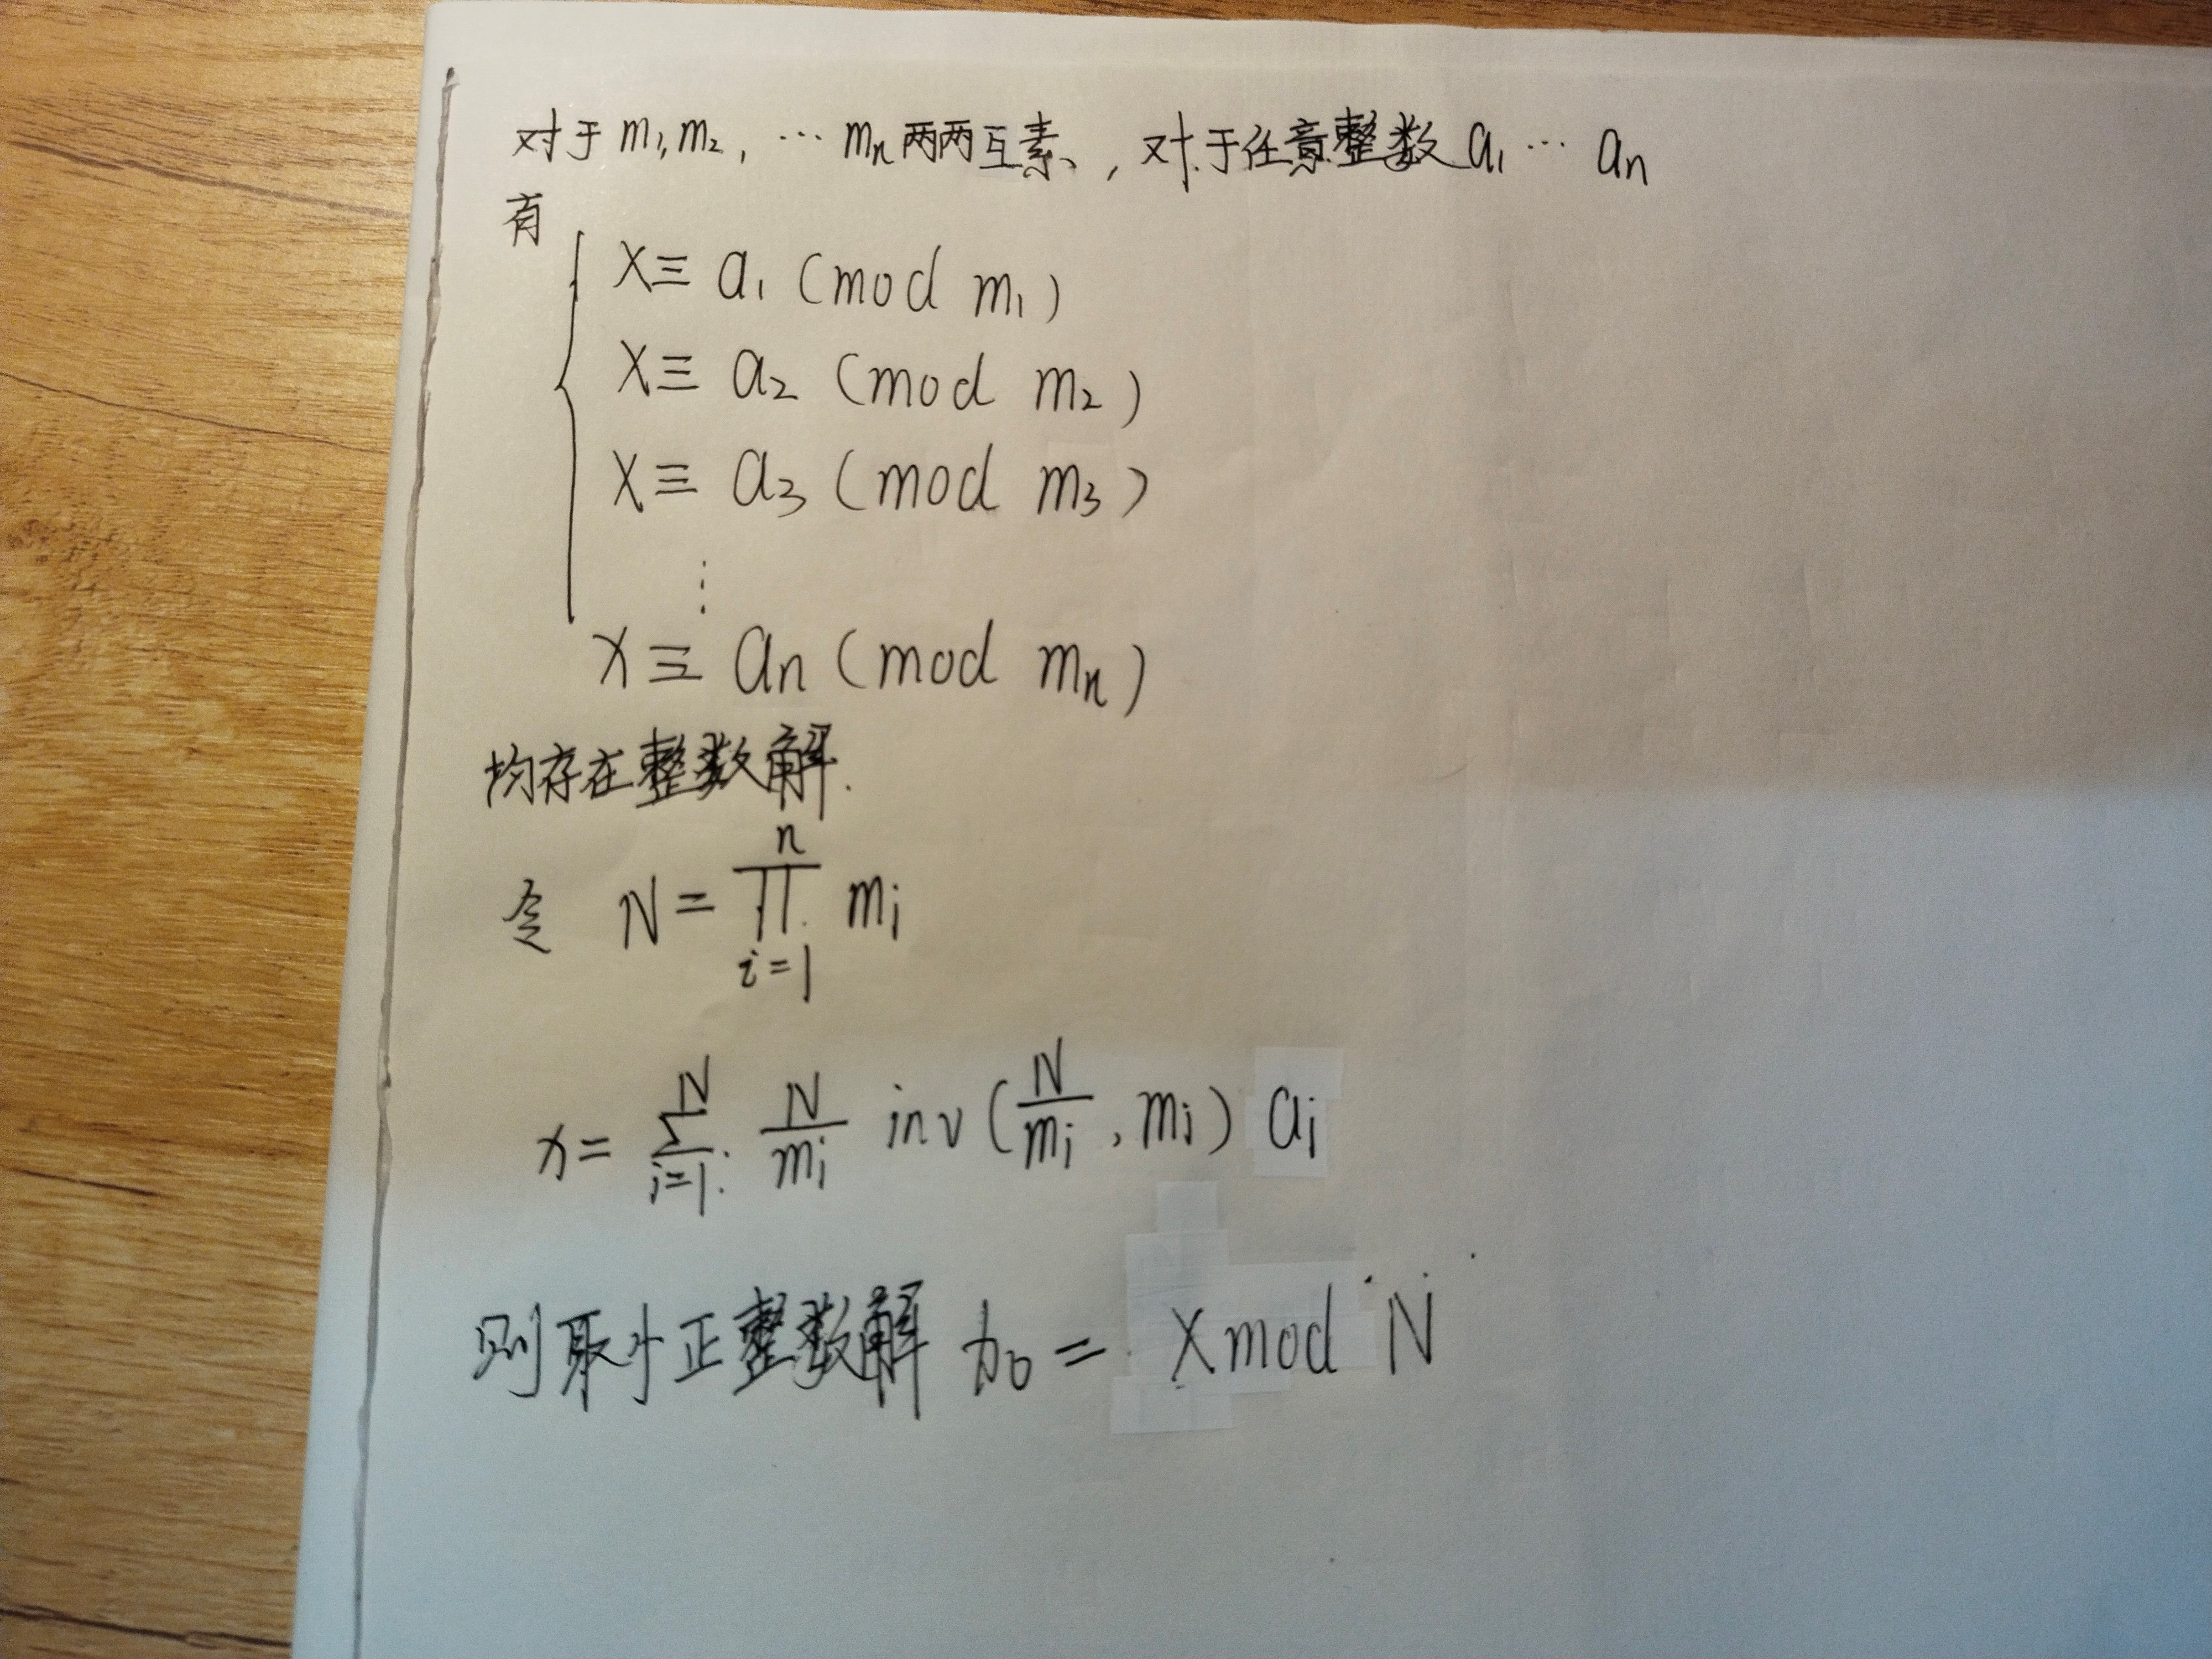 对于 m₁, m₂, … mₙ 两两互素, 对于任意整数 a₁ … aₙ
有
x ≡ a₁ (mod m₁)
x ≡ a₂ (mod m₂)
x ≡ a₃ (mod m₃)
⋮
x ≡ aₙ (mod mₙ)
均存在整数解.
令 N = ∏_{i=1}^{n} mᵢ
x = ∑_{i=1}^{N} N/mᵢ inv(N/mᵢ, mᵢ) aᵢ
则取小正整数解 x₀ = x mod N